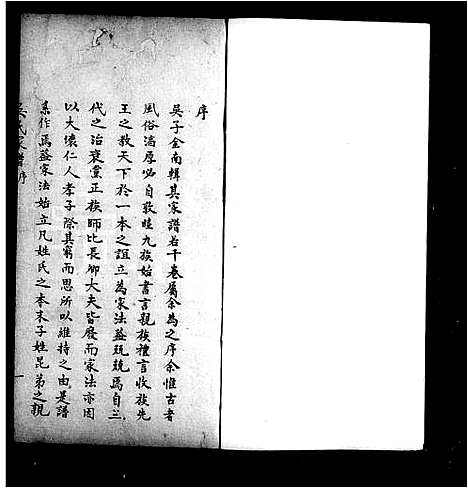 序
吳子金南輯其家譜若干卷屬余為之序余惟古者
風俗湻厚必自敦睦九族始書言親族禮言收族先
王之教天下於一本之誼立為家法益兢兢焉自三
代之治衰黨正族師比長鄉大夫皆廢而家法亦因
以大壞仁人孝子際其窮而思所以維持之由是譜
系作焉蓋家法始立凡姓氏之本末子姓昆弟之親
吳氏家譜序
一